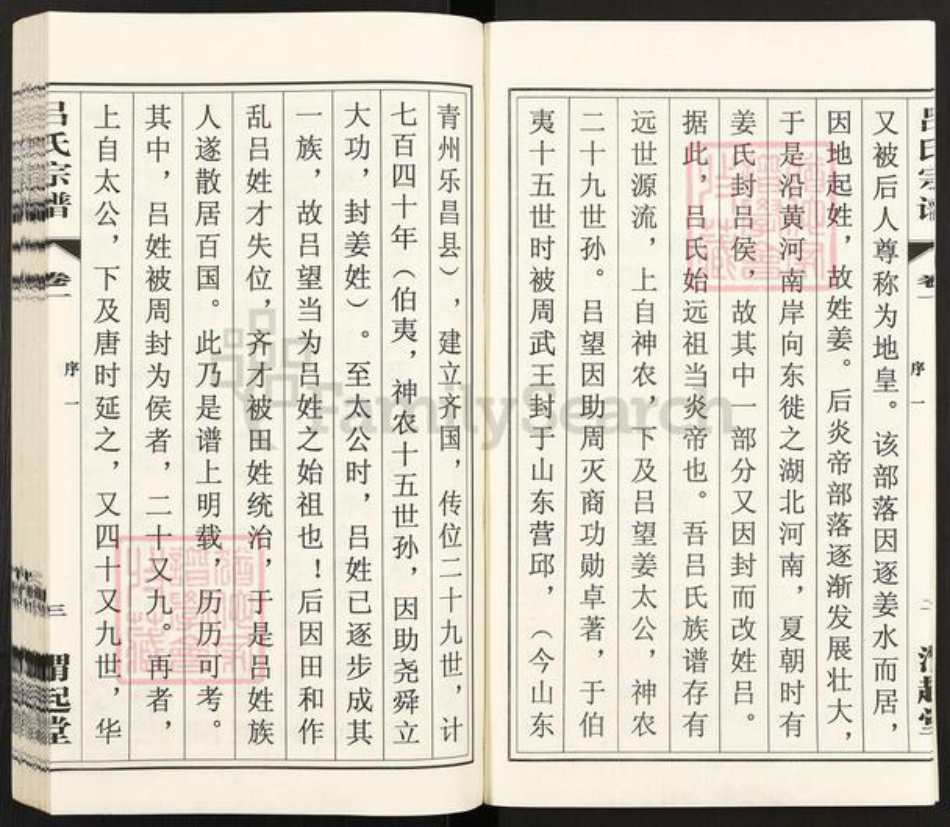 吕氏宗谱
卷一
序一
又被后人尊称为地皇。该部落因逐姜水而居，
因地起姓，故姓姜。后炎帝部落逐渐发展壮大，
于是沿黄河南岸向东徙之湖北河南，夏朝时有
姜氏封吕侯，故其中一部分又因封而改姓吕。
据此，吕氏始远祖当炎帝也。吾吕氏族谱存有
远世源流，上自神农，下及吕望姜太公，神农
二十九世孙。吕望因助周灭商功勋卓著，于伯
夷十五世时被周武王封于山东营邱，（今山东
青州乐昌县），建立齐国，传位二十九世，计
七百四十年（伯夷，神农十五世孙，因助尧舜立
大功，封姜姓）。至太公时，吕姓已逐步成其
一族，故吕望当为吕姓之始祖也！后因田和作
乱吕姓才失位，齐才被田姓统治，于是吕姓族
人遂散居百国。此乃是谱上明载，历历可考。
其中，吕姓被周封为侯者，二十又九。再者，
上自太公，下及唐时延之，又四十又九世，华
吕氏宗谱
卷一
序一
三
渭起堂
FamilySearch